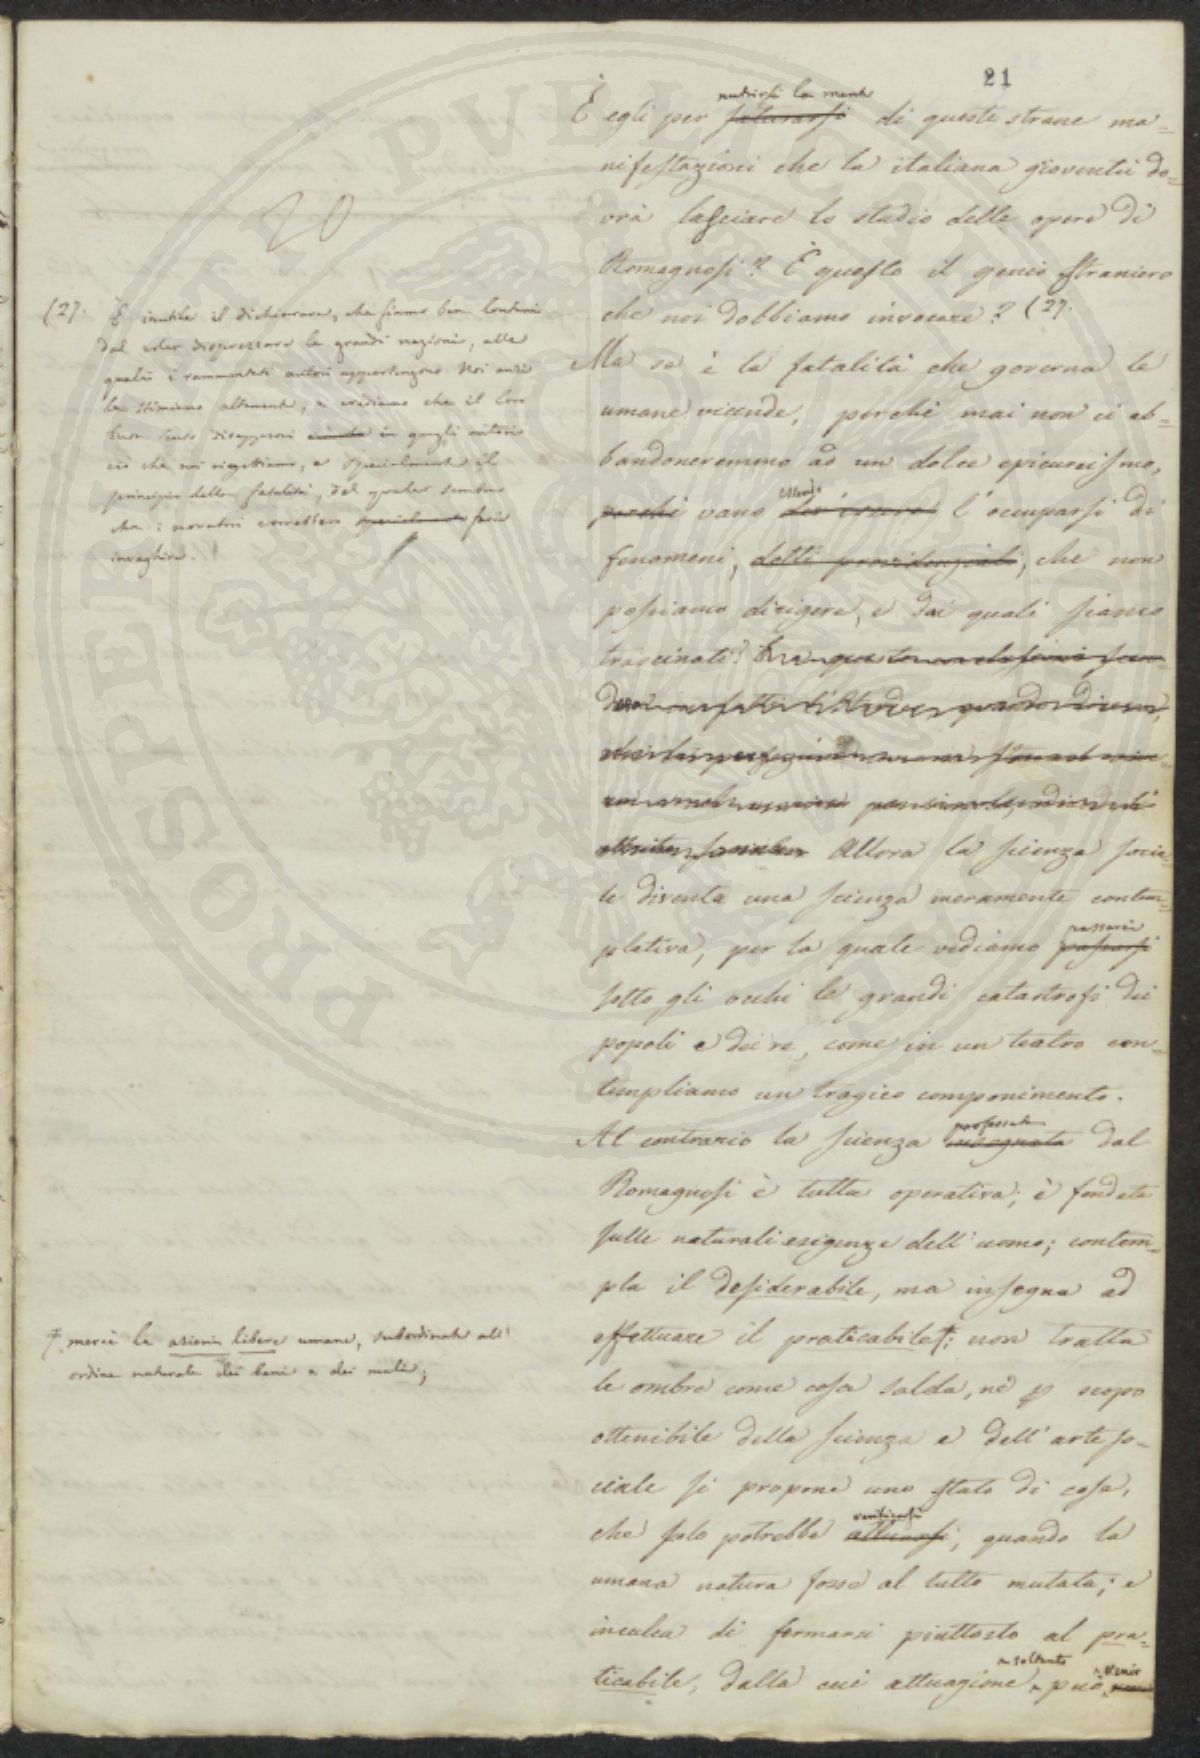 21
nutrirsi la mente
È egli per saturarsi di queste strane ma=
nifestazioni che la italiana gioventù do=
vrà lasciare lo studio delle opere di
Romagnosi? È questo il genio straniero
che noi dobbiamo invocare? (2).
Ma se è la fatalità che governa le
umane vicende, perchè mai non ci ab=
bandoneremmo ad un dolce epicureismo,
essendo
perchè vano dev'essere l'occuparsi di
fenomeni, detti provvidenziali, che non
possiamo dirigere, e dai quali siamo
trascinati?
Allora la scienza socia=
le diventa una scienza meramente contem=
plativa, per la quale vediamo passarsi
passarci
sotto gli occhi le grandi catastrofi dei
popoli e dei re, come in un teatro con=
templiamo un tragico componimento.
professata
Al contrario la scienza insegnata dal
Romagnosi è tutta operativa; è fondata
sulle naturali esigenze dell'uomo; contem=
pla il desiderabile, ma insegna ad
effettuare il praticabile†; non tratta
le ombre come cosa salda, nè p scopo
ottenibile della scienza e dell'arte so=
ciale si propone uno stato di cose,
verificarsi
che solo potrebbe attuarsi, quando la
umana natura fosse al tutto mutata; e
inculca di fermarsi piuttosto al pra=
soltanto venir
ticabile, dalla cui attuazione può
20
(2). È inutile il dichiarare, che siamo ben lontani
dal voler disprezzare le grandi nazioni, alle
quali i rammentati autori appartengono. Noi anzi
le stimiamo altamente, e crediamo che il loro
buon senso disapprovi in quegli autori
ciò che noi rigettiamo, e specialmente il
principio della fatalità, del quale sembra
che i novatori vorrebbero specialmente farci
invaghire.
† mercè le azioni libere umane, subordinate all'
ordine naturale dei beni e dei mali;
PROSPERITATI PVBLICAE